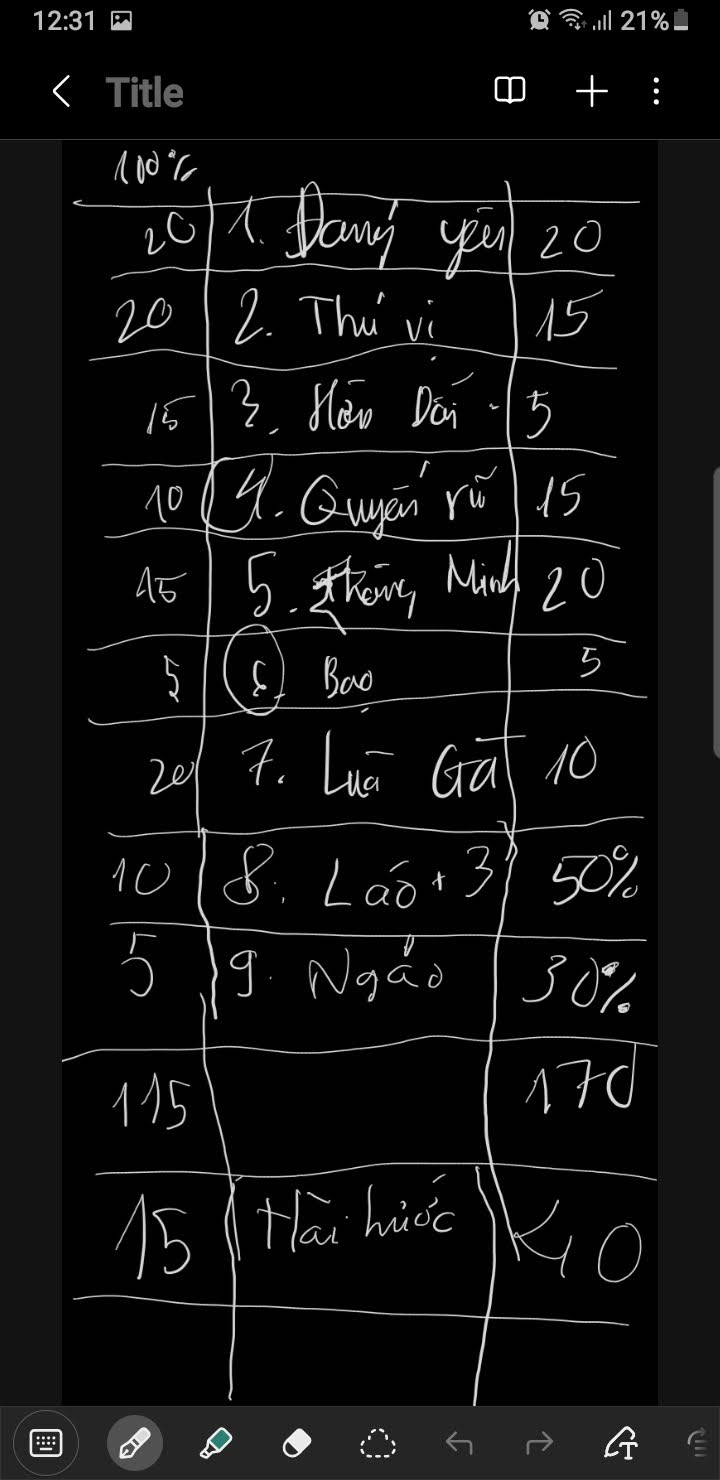 12:31 21%
Title
100%
20 1. Đáng yêu 20
20 2. Thú vị 15
15 3. Hào Dái - 5
10 4. Quyến rũ 15
15 5. Thông Minh 20
5 6. Bạo 5
20 7. Lùa Gà 10
10 8. Láo + 3 50%
5 9. Ngáo 30%
115 170
15 Hài hước 40